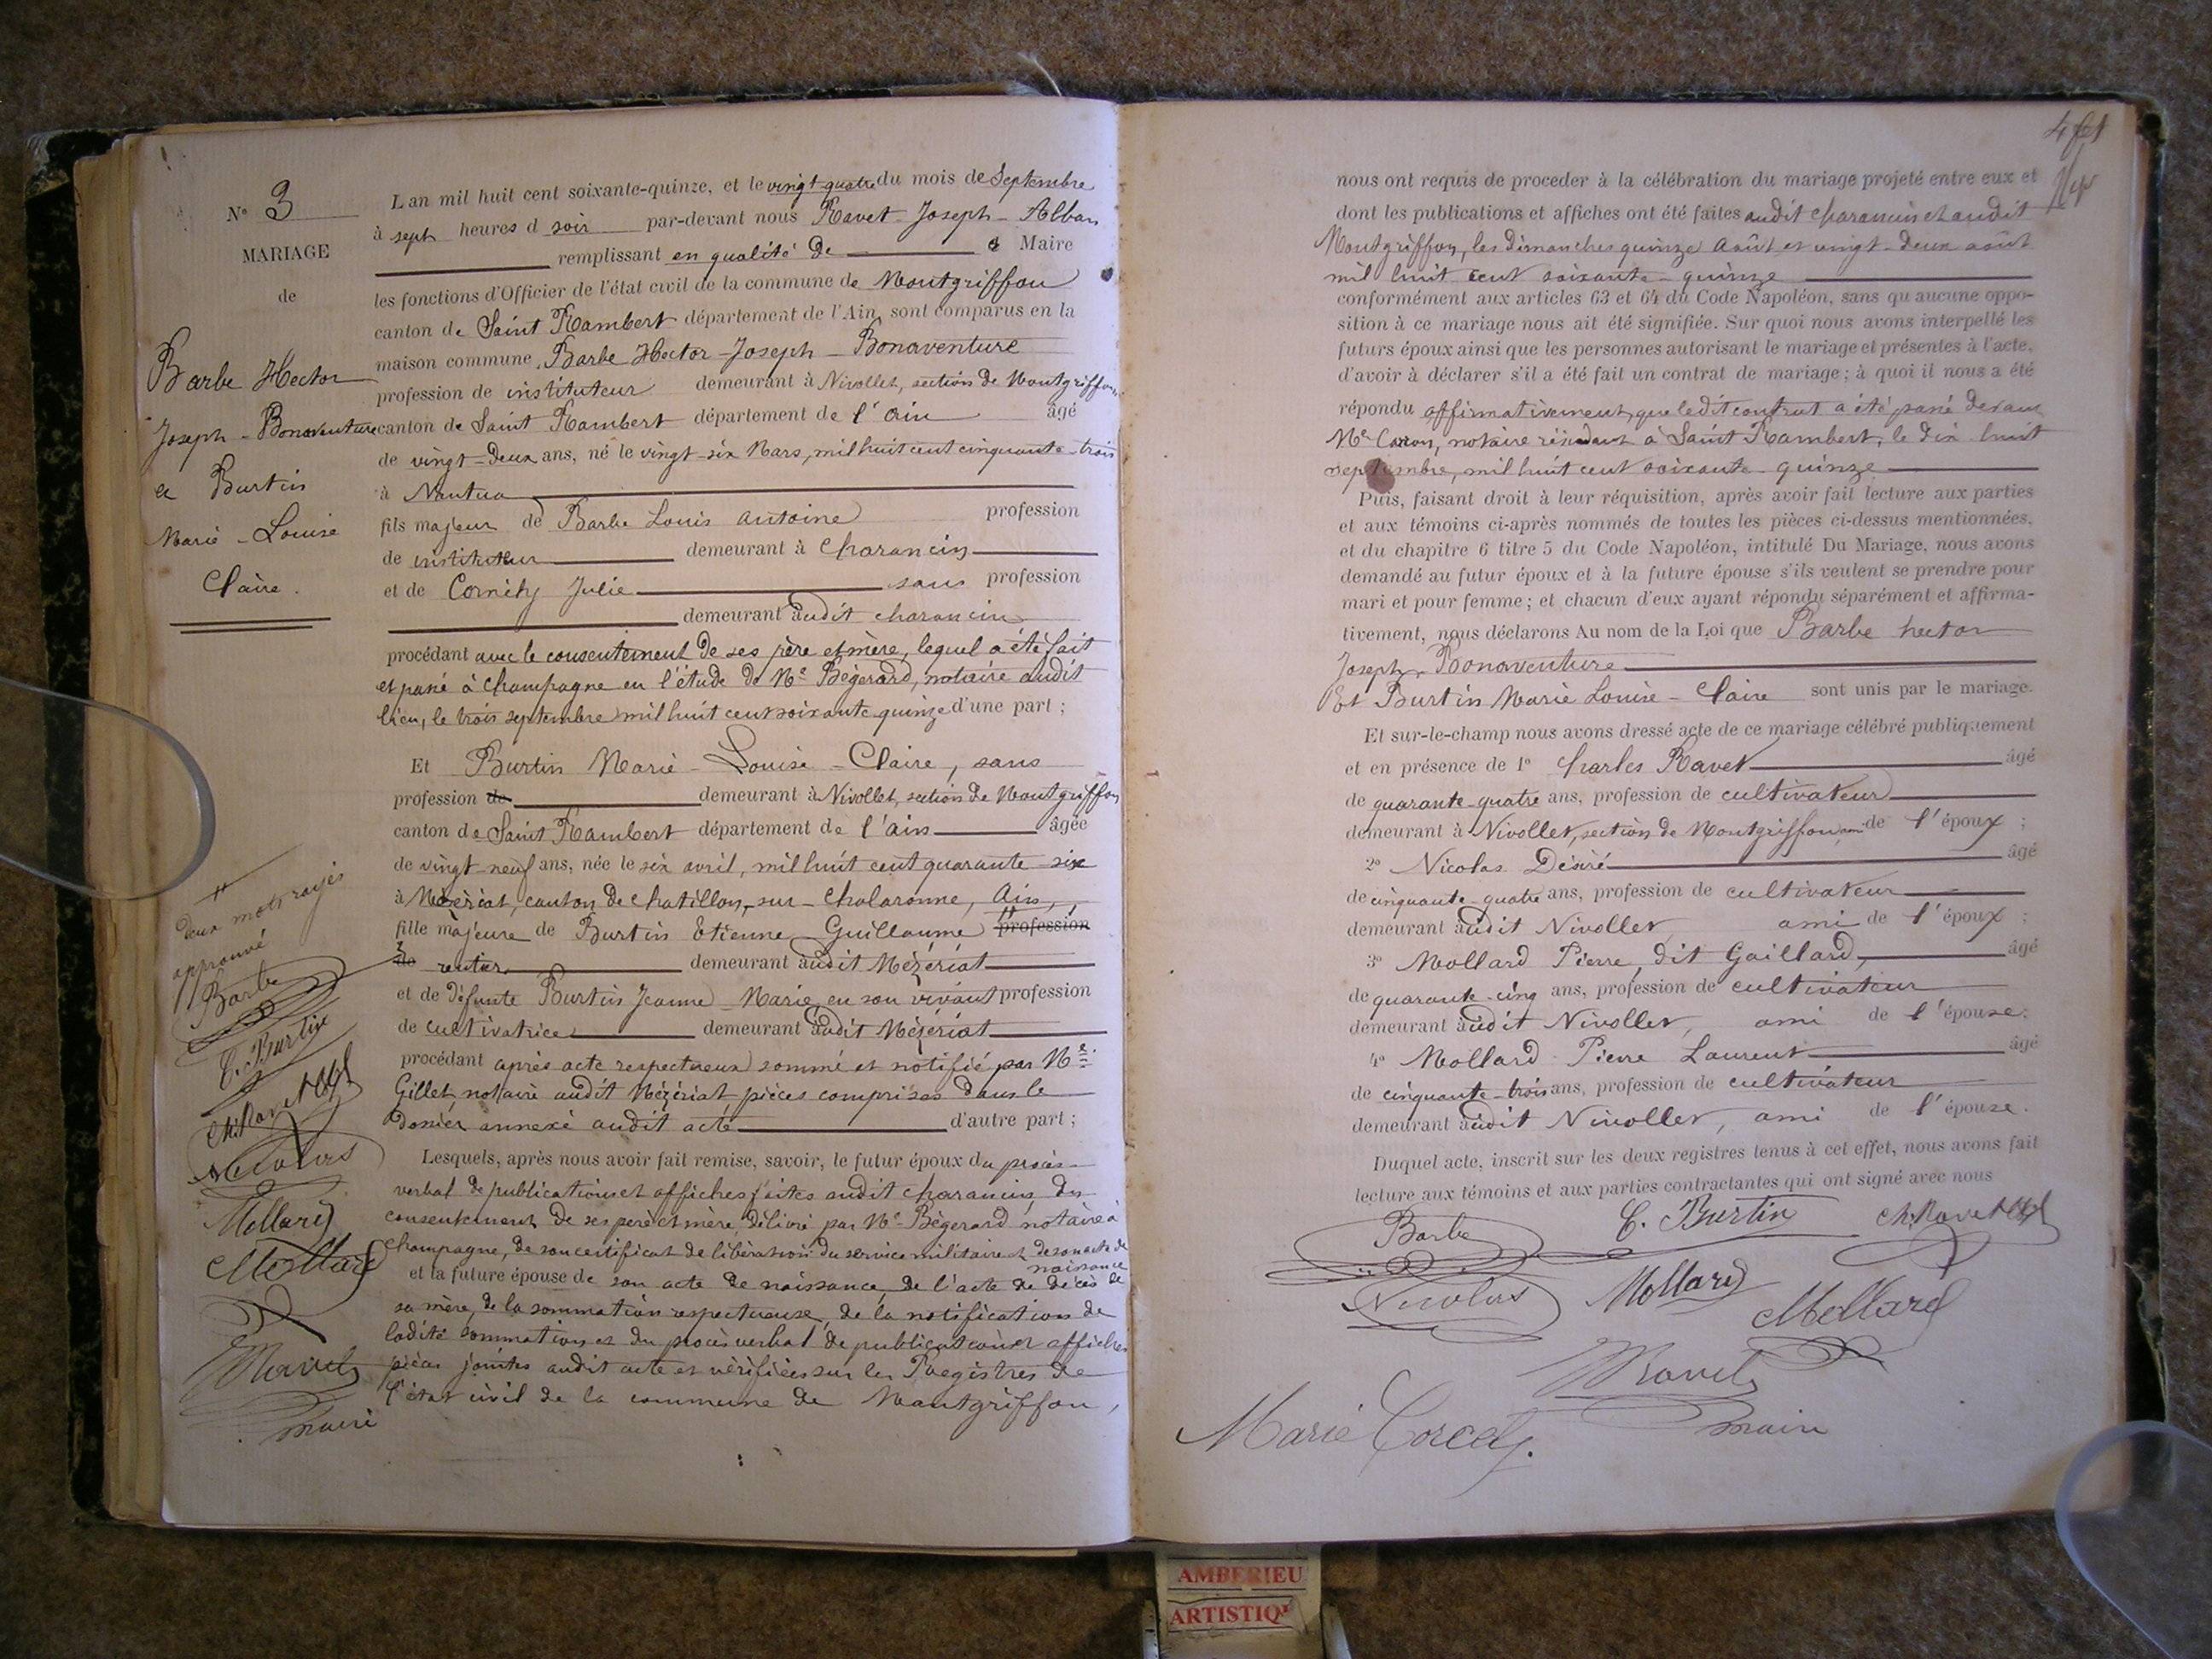 N° 3
MARIAGE
de
Barbe Hector
Joseph - Bonaventure
et Burtin
Marie - Louise
Claire.
L'an mil huit cent soixante-quinze, et le vingt-quatre du mois de Septembre
à sept heures d soir par-devant nous Ravet Joseph - Alban
remplissant en qualité de Maire
les fonctions d'Officier de l'état civil de la commune de Montgriffon
canton de Saint Rambert département de l'Ain, sont comparus en la
maison commune, Barbe Hector - Joseph - Bonaventure
profession de instituteur demeurant à Nivollet, section de Montgriffon,
canton de Saint Rambert département de l'ain âgé
de vingt-deux ans, né le vingt-six Mars, mil huit cent cinquante-trois
à Nantua
fils majeur de Barbe Louis Antoine profession
de instituteur demeurant à Charancin
et de Julie sans profession
demeurant audit charancin
procédant avec le consentement de ses père et mère, lequel a été fait
et passé à Champagne en l'étude de Me Bégerard, notaire audit
lieu, le trois septembre mil huit cent soixante quinze d'une part ;
Et Burtin Marie - Louise - Claire, sans
profession de demeurant à Nivollet, section de Montgriffon
canton de Saint Rambert département de l'ain âgée
de vingt-neuf ans, née le six avril, mil huit cent quarante-six
à Mézériat, canton de Chatillon-sur-Chalaronne, Ain,
fille majeure de Burtin Etienne Guillaume profession
de rentier demeurant audit Mézériat
et de défunte Burtin Jeanne Marie, en son vivant profession
de cultivatrice demeurant audit Mézériat
procédant après acte respectueux sommé et notifié par Me
Gillet, notaire audit Mézériat pièces comprises dans le
dossier annexé audit acte d'autre part ;
Lesquels, après nous avoir fait remise, savoir, le futur époux du procès-
verbal de publication et affiches faites audit charancin, du
consentement de ses père et mère, délivré par Me Bégerard notaire à
champagne, de son certificat de libération du service militaire et de son acte de
naissance
et la future épouse de son acte de naissance, de l'acte de décès de
sa mère, de la sommation respectueuse, de la notification de
ladite sommation et du procès verbal de publication et affiches
pièces jointes audit acte et vérifiées sur les Registres de
l'état civil de la commune de Montgriffon,
deux mots rayés
approuvé
Barbe
C. Burtin
Ch. Ravet
Nicolas
Mollard
Mollard
Ravet
maire
nous ont requis de proceder à la célébration du mariage projeté entre eux et
dont les publications et affiches ont été faites audit charancin et audit
Montgriffon, les dimanches quinze Août et vingt-deux août
mil huit cent soixante-quinze
conformément aux articles 63 et 64 du Code Napoléon, sans qu'aucune oppo-
sition à ce mariage nous ait été signifiée. Sur quoi nous avons interpellé les
futurs époux ainsi que les personnes autorisant le mariage et présentes à l'acte,
d'avoir à déclarer s'il a été fait un contrat de mariage ; à quoi il nous a été
répondu affirmativement, que ledit contrat a été passé devant
Me notaire résidant à Saint Rambert, le dix-huit
septembre, mil huit cent soixante-quinze
Puis, faisant droit à leur réquisition, après avoir fait lecture aux parties
et aux témoins ci-après nommés de toutes les pièces ci-dessus mentionnées,
et du chapitre 6 titre 5 du Code Napoléon, intitulé Du Mariage, nous avons
demandé au futur époux et à la future épouse s'ils veulent se prendre pour
mari et pour femme ; et chacun d'eux ayant répondu séparément et affirma-
tivement, nous déclarons Au nom de la Loi que Barbe hector
Joseph, Bonaventure
Et Burtin Marie Louise - Claire sont unis par le mariage.
Et sur-le-champ nous avons dressé acte de ce mariage célébré publiquement
et en présence de 1° Charles Ravet âgé
de quarante-quatre ans, profession de cultivateur
demeurant à Nivollet, section de Montgriffon, ami de l'époux ;
2° Nicolas Désiré âgé
de cinquante-quatre ans, profession de cultivateur
demeurant audit Nivollet ami de l'époux ;
3° Mollard Pierre, dit Gaillard, âgé
de quarante-cinq ans, profession de cultivateur
demeurant audit Nivollet, ami de l'épouse ;
4° Mollard Pierre Laurent âgé
de cinquante-trois ans, profession de cultivateur
demeurant audit Nivollet, ami de l'épouse.
Duquel acte, inscrit sur les deux registres tenus à cet effet, nous avons fait
lecture aux témoins et aux parties contractantes qui ont signé avec nous
Barbe C. Burtin Ch. Ravet
Nicolas Mollard Mollard
Ravet
Marie maire
AMBERIEU
ARTISTIQ